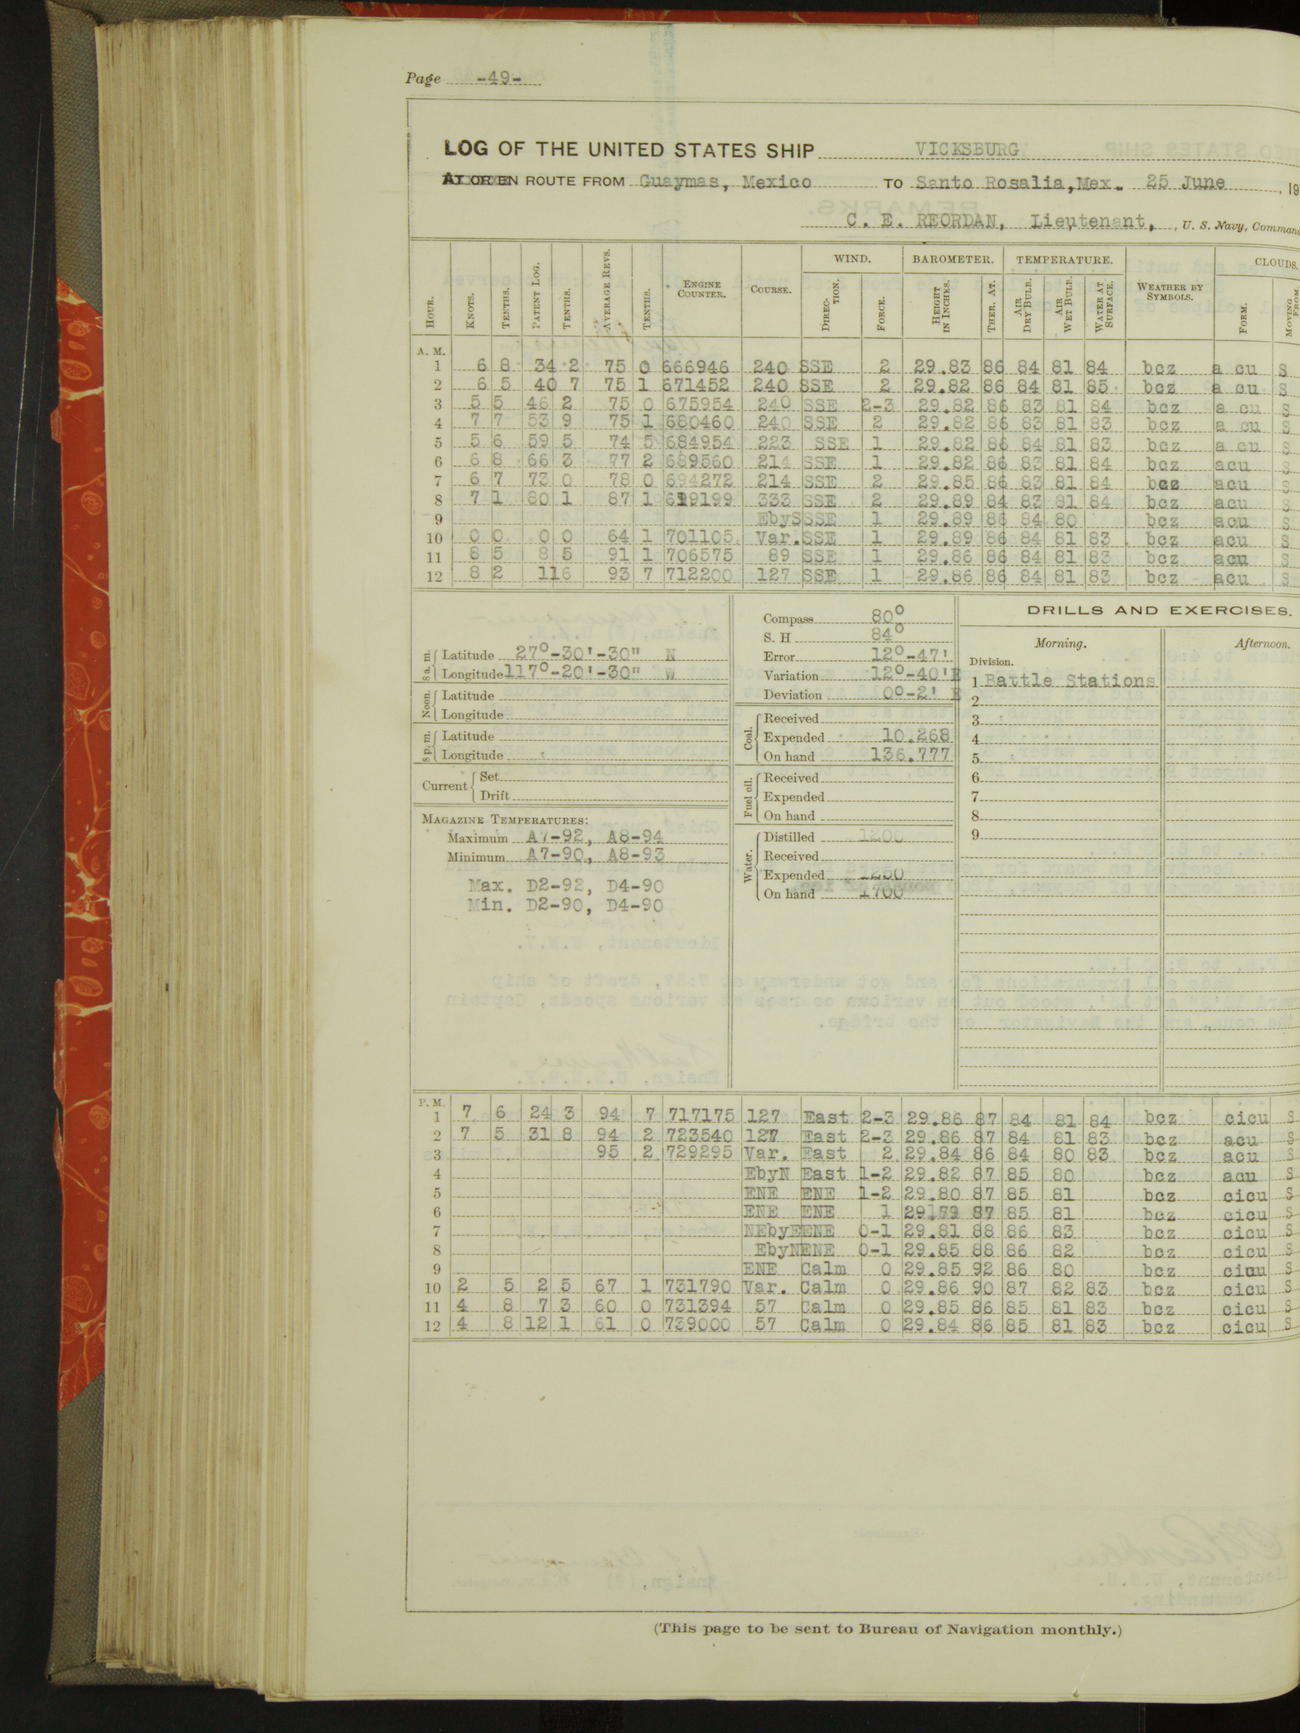 Page -49-
LOG OF THE UNITED STATES SHIP VICKSBURG
AT OR EN ROUTE FROM Guaymas, Mexico TO Santo Rosalia,Mex. 25 June , 19
C. E. REORDAN, Lieutenant, , U. S. Navy, Comman
WIND. BAROMETER. TEMPERATURE. CLOUDS.
HOUR. KNOTS. TENTHS. PATENT LOG. TENTHS. AVERAGE REVS. TENTHS. ENGINE COUNTER. COURSE. DIRECTION. FORCE. HEIGHT IN INCHES. THER. AT. AIR DRY BULB. AIR WET BULB. WATER AT SURFACE. WEATHER BY SYMBOLS. FORM. MOVING FROM
A. M.
1 6 8 34 2 75 0 666946 240 SSE 2 29.83 86 84 81 84 bcz a cu S
2 6 5 40 7 75 1 671452 240 SSE 2 29.82 86 84 81 85 bcz a cu S
3 5 5 46 2 75 0 675954 240 SSE 2-3 29.82 86 83 81 84 bcz a cu S
4 7 7 53 9 75 1 680460 240 SSE 2 29.82 86 83 81 83 bcz a cu S
5 5 6 59 5 74 5 684954 223 SSE 1 29.82 86 84 81 83 bcz a cu S
6 6 8 66 3 77 2 689560 214 SSE 1 29.82 86 83 81 84 bcz acu S
7 6 7 73 0 78 0 694272 214 SSE 2 29.85 86 83 81 84 bcz acu S
8 7 1 80 1 87 1 699199 333 SSE 2 29.89 84 83 81 84 bcz acu S
9 EbyS SSE 1 29.89 86 84 80 bcz acu S
10 0 0 0 0 64 1 701105 Var. SSE 1 29.89 86 84 81 83 bcz acu S
11 8 5 8 5 91 1 706575 89 SSE 1 29.86 86 84 81 83 bcz acu S
12 8 2 116 93 7 712200 127 SSE 1 29.86 86 84 81 83 bcz acu S
8 a.m. Latitude 27°-30'-30" N
Longitude 117°-20'-30" W
Noon. Latitude
Longitude
8 p.m. Latitude
Longitude
Current Set
Drift
MAGAZINE TEMPERATURES:
Maximum A7-92, A8-94
Minimum A7-90, A8-93
Max. D2-92, D4-90
Min. D2-90, D4-90
Compass 80°
S. H 84°
Error 12°-47'
Variation 12°-40'E
Deviation 0°-2' E
Coal. Received
Expended 10.268
On hand 136.777
Fuel oil. Received
Expended
On hand
Water. Distilled 1200
Received
Expended 1250
On hand 1700
DRILLS AND EXERCISES.
Morning. Afternoon.
Division.
1 Battle Stations
2
3
4
5
6
7
8
9
P. M.
1 7 6 24 3 94 7 717175 127 East 2-3 29.86 87 84 81 84 bcz cicu S
2 7 5 31 8 94 2 723540 127 East 2-3 29.86 87 84 81 83 bcz acu S
3 95 2 729295 Var. East 2 29.84 86 84 80 83 bcz acu S
4 EbyN East 1-2 29.82 87 85 80 bcz acu S
5 ENE ENE 1-2 29.80 87 85 81 bcz cicu S
6 ENE ENE 1 29.79 87 85 81 bcz cicu S
7 NEbyE ENE 0-1 29.81 88 86 83 bcz cicu S
8 EbyN ENE 0-1 29.85 88 86 82 bcz cicu S
9 ENE Calm 0 29.85 92 86 80 bcz cicu S
10 2 5 2 5 67 1 731790 Var. Calm 0 29.86 90 87 82 83 bcz cicu S
11 4 8 7 3 60 0 731394 57 Calm 0 29.85 86 85 81 83 bcz cicu S
12 4 8 12 1 61 0 739000 57 Calm 0 29.84 86 85 81 83 bcz cicu S
(This page to be sent to Bureau of Navigation monthly.)